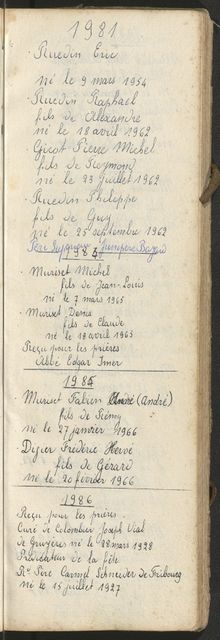 1981
Ruedin Eric
né le 9 mars 1954
Ruedin Raphael
fils de Alexandre
né le 18 avril 1962
Girot Pierre Michel
fils de Raymond
né le 23 juillet 1962
Ruedin Philippe
fils de Guy
né le 25 septembre 1962
1984
Muriset Michel
fils de Jean-Louis
né le 7 mars 1965
Muriset Denis
fils de Claude
né le 18 avril 1965
Reçu pour les prières
Abbé Edgar Imer
1985
Muriset Fabien André (André)
fils de Rémy
né le 27 janvier 1966
Digier Frédéric Hervé
fils de Gérard
né le 20 février 1966
1986
Reçu pour les prières
Curé de Colombier Joseph Vial
de Gruyères né le 28 mars 1928
Prédicateur de la fête
Rd Père Carmel Schneider de Fribourg
né le 15 juillet 1927